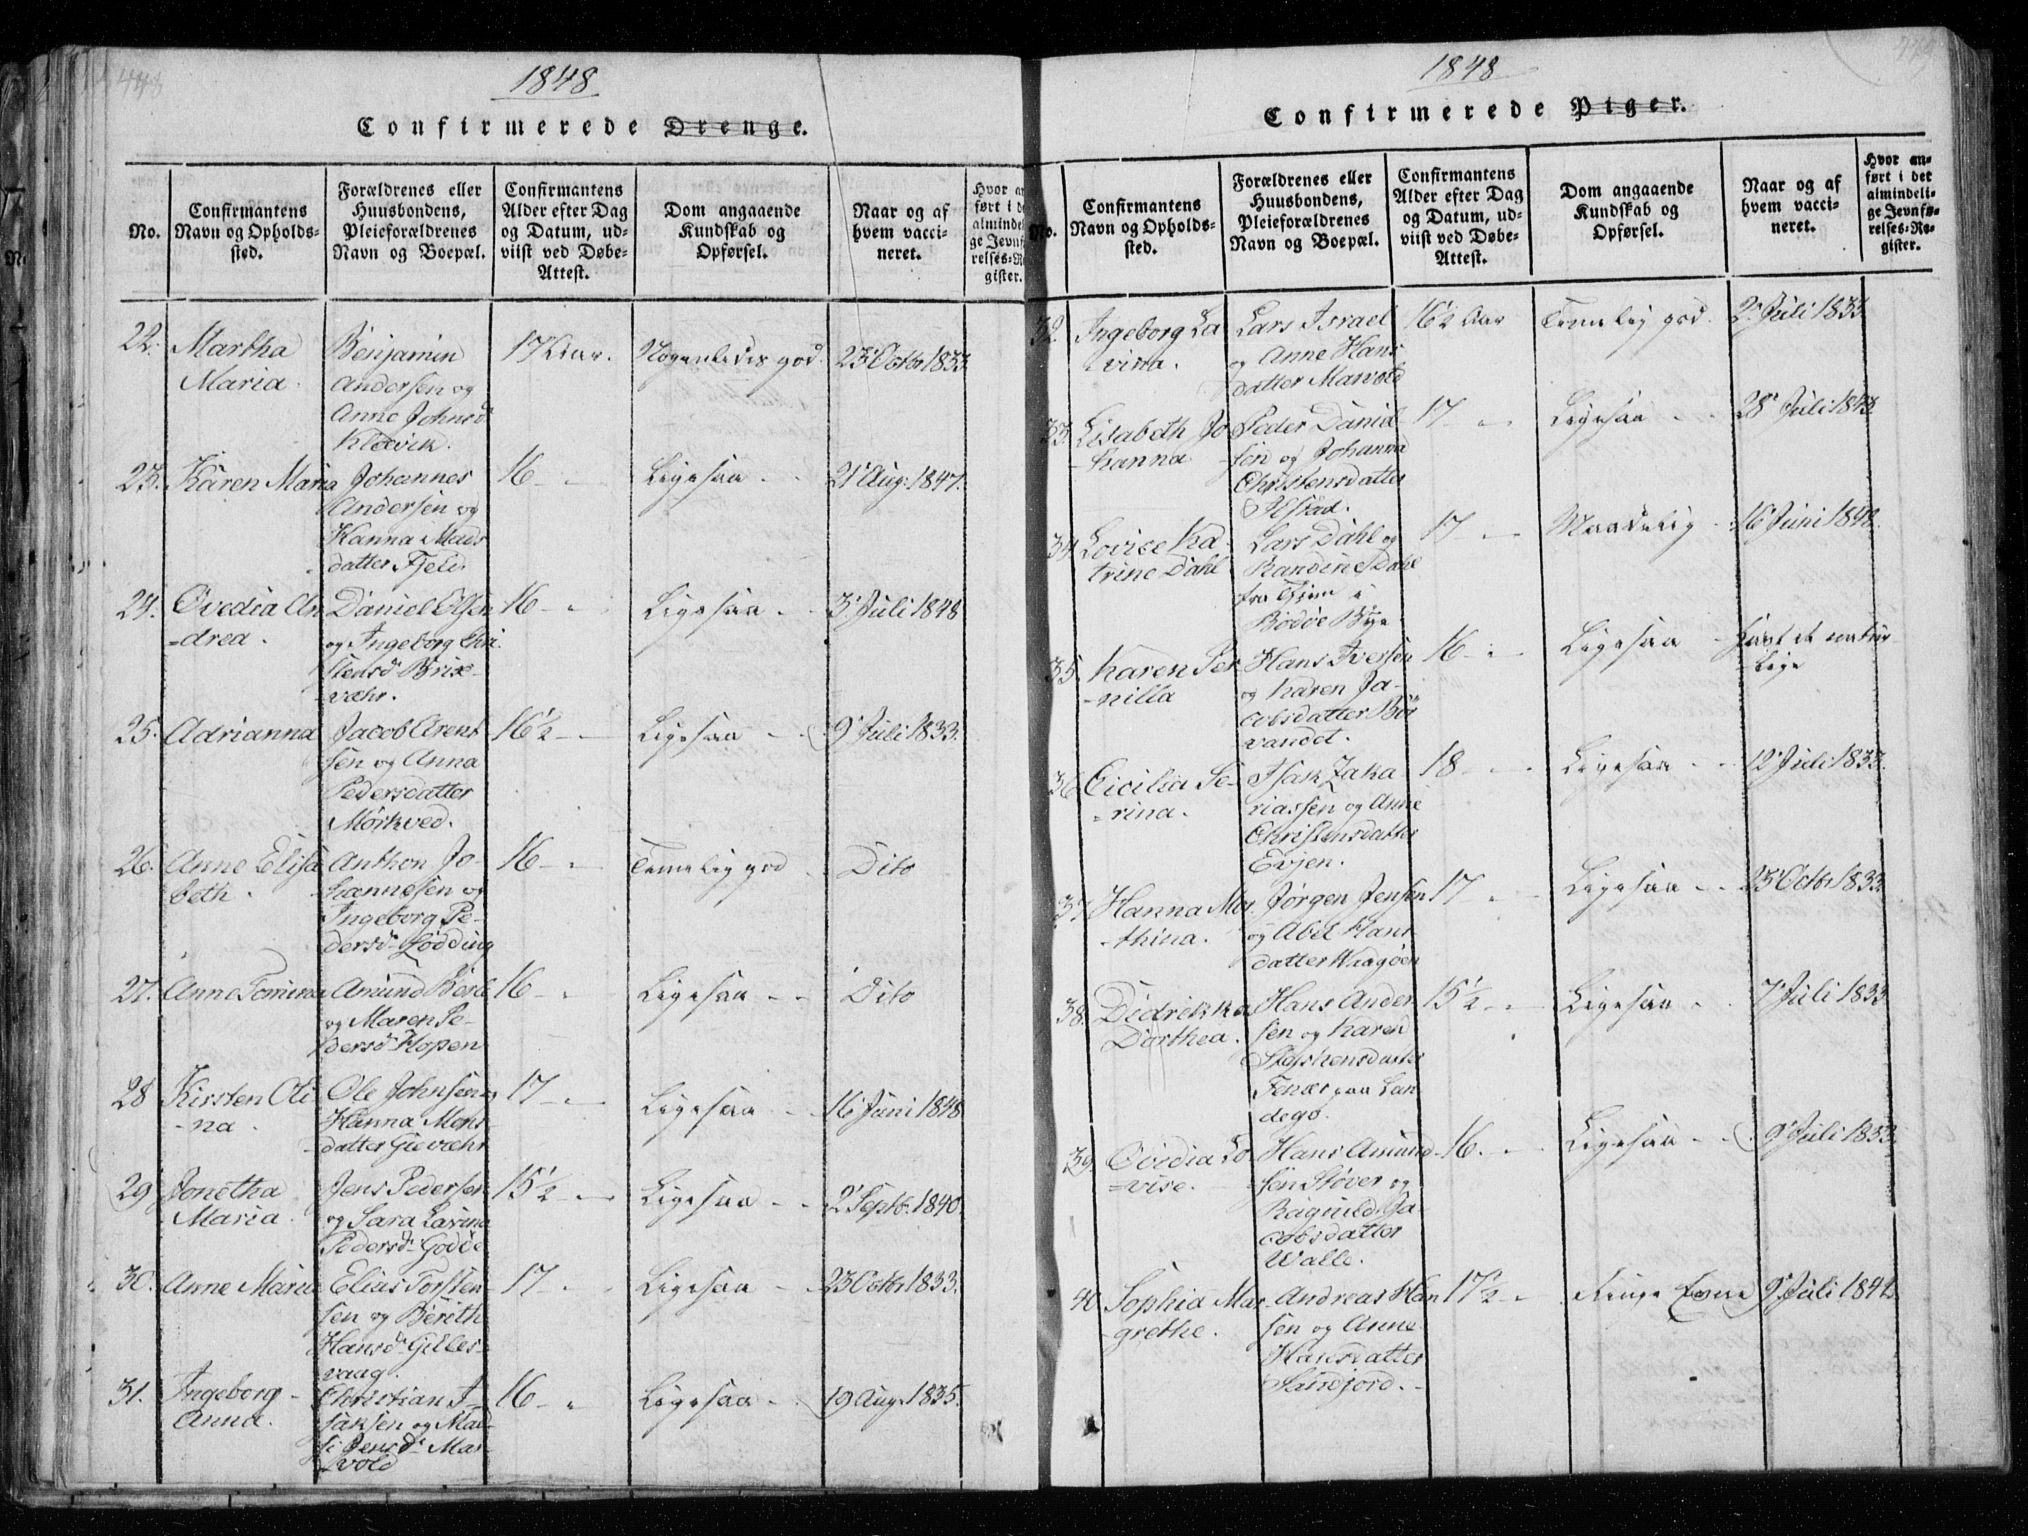 1848
Confirmerede Drenge.
No.
Confirmantens
Navn og Opholds-
sted.
Forældrenes eller
Huusbondens,
Pleieforældrenes
Navn og Boepæl.
Confirmantens
Alder efter Dag
og Datum, ud-
viist ved Døbe-
Attest.
Dom angaaende
Kundskab og
Opførsel.
Naar og af
hvem vacci-
neret.
22. Martha
Maria.
Benjamin
Andersen og
Anne Johnsd
Kløvik.
17 Aar.
Nogenledes god.
23 Octbr 1833
23. Karen Maria
Johannes
Andersen og
Hanna Mads
datter Fjele
16
Ligesaa
21 Aug. 1847.
24. Ovedia An
=drea.
Daniel Olsen
og Ingeborg Chri
stensd Brixe-
væhr.
16
Ligesaa
3 Juli 1848
25. Adrianna
Jacob Arent
sen og Anna
Pedersdatter
Mørkved.
16½
Ligesaa
9 Juli 1833.
26. Anne Elisa
beth.
Anthon Jo-
hannesen og
Ingeborg Pe-
dersd Lødding
16
Temelig god
Dito
27. Anne Tomina
Amund
og Maren Pe-
dersd Hopen
16
Ligesaa
Dito
28 Kirsten Oli
-na.
Ole Johnsen og
Hanna Mons
datter Gievæhr
17
Ligesaa
16 Juni 1848
29 Jonetha
Maria.
Jens Pedersen
og Sara Lavina
Pedersd Godøe
15½
Ligesaa
2 Septb. 1840.
30. Anne Maria
Elias Torsten
sen og Berith
Hansd Gilles-
vaag.
17
Ligesaa
23 Octbr 1833.
31. Ingeborg
Anna.
Christian I-
saksen og Mar-
Jensd Mar-
vold
16
Ligesaa
19 Aug. 1835.
1848
Confirmerede Piger.
No.
Confirmantens
Navn og Opholds-
sted.
Forældrenes eller
Huusbondens,
Pleieforældrenes
Navn og Boepæl.
Confirmantens
Alder efter Dag
og Datum, ud-
viist ved Døbe-
Attest.
Dom angaaende
Kundskab og
Opførsel.
Naar og af
hvem vacci-
neret.
Hvor an-
ført i det
almindeli-
ge Jevnfø-
relses-Re-
gister.
32. Ingeborg La
vina.
Lars Israel
og Anne Hans
datter Marvold
16½ Aar
Temelig god.
2 Juli 1833
33. Lisabeth Jo
-hanna
Peder Daniel
sen og Johanna
Christensdatter
Alstad.
17
Ligesaa
28 Juli 1843
34 Lovise Ka
trine Dahl
Lars Dahl og
Randine Dahl
fra i
Bodøe Bye
17
Maadelig
16 Juni 1848.
35. Karen Per
-nilla
Hans Iversen
og Karen Ja-
cobsdatter Bør
vandet.
16
Ligesaa
havt de natur
-lige
36 Cicilia Se-
-rina.
Isak Zaka
riassen og Anne
Christensdatter
Evjen.
18
Ligesaa
12 Juli 1833.
37 Hanna Ma
-thina.
Jørgen Jensen
og Abel Hans-
datter Waagøen
17
Ligesaa
23 Octbr 1833
38. Didrikka
Dorthea.
Hans Ander
sen og Karen
Stephensdatter
Fenæs paa Lan
degø.
15½
Ligesaa
7 Juli 1833
39. Ovidia Lo
=vise.
Hans Amund-
sen Støver og
Ragnild Ja-
cobsdatter
Walle.
16.
Ligesaa
9 Juli 1833.
40 Sophia Mar
-grethe.
Andreas Han
sen og Anne
Hansdatter
Sandjord.
17½
Ringe Evne
9 Juli 1842.